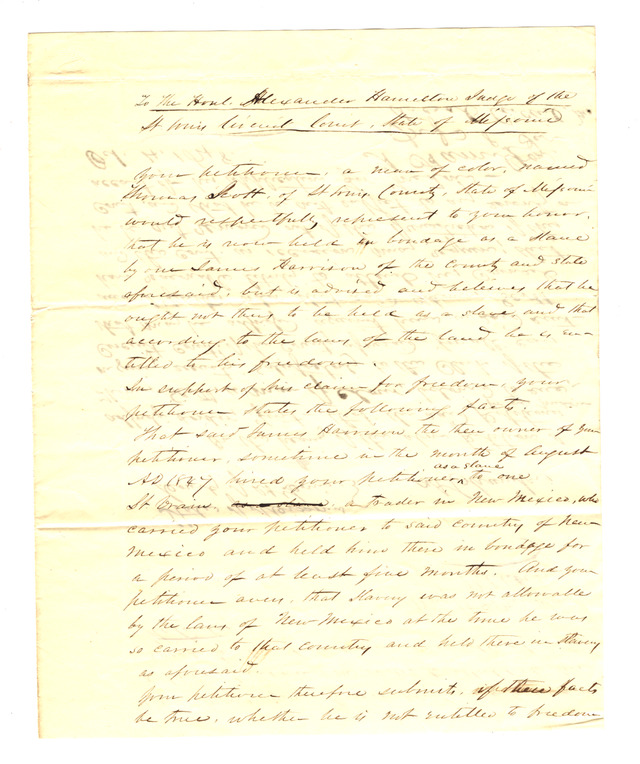 To the Honl. Alexander Hamilton Judge of the
St Louis Circuit Court, State of Missouri
Your petitioner, a man of color, named
Thomas Scott, of St Louis County, State of Missouri
would respectfully represent to your honor,
that he is now held in bondage as a slave
by one James Harrison of the County and state
aforesaid, but is advised and believes that he
ought not thus to be held as a slave, and that
according to the laws of the land he is en-
titled to his freedom.
In support of his claim for freedom, your
petitioner states the following facts.
That said James Harrison the then owner of your
petitioner, sometime in the month of August
AD 1847 hired your petitioner as a slave to one
St Vrain, as a slave, a trader in New Mexico, who
carried your petitioner to said country of New
Mexico and held him there in bondage for
a period of at least five months. And your
petitioner avers, that Slavery was not allowable
by the laws of New Mexico at the time he was
so carried to that country and held there in Slavery
as aforesaid.
Your petitioner therefore submits, if these facts
be true, whether he is not entitled to freedom